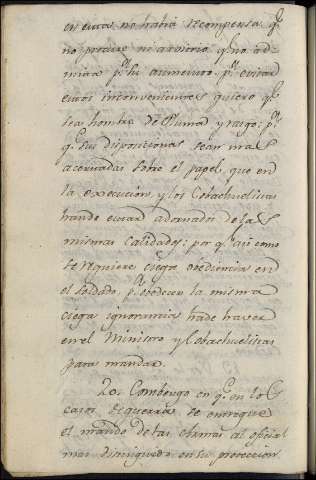 en estas no habia recompensa qe
no procure ni arvitrio qe no ad-
mita pa su aumento. pa evitar
estos inconvenientes quiero qe
sea hombre de Pluma y rasgo: pa
qe sus disposiciones sean mas
acertadas sobre el papel, que en
la execucion, y los Cobachuelistas
han de estar adornados de las
mismas calidades: por qe asi como
se requiere ciega obediencia en
el soldado, pa obedecer la misma
ciega ignorancia ha de haver
en el Ministro y Cobachuelistas
para mandar.
20. Combengo en qe en los
casos de guerra se entregue
el mando de las Armas al oficial
mas distinguido en la proteccion